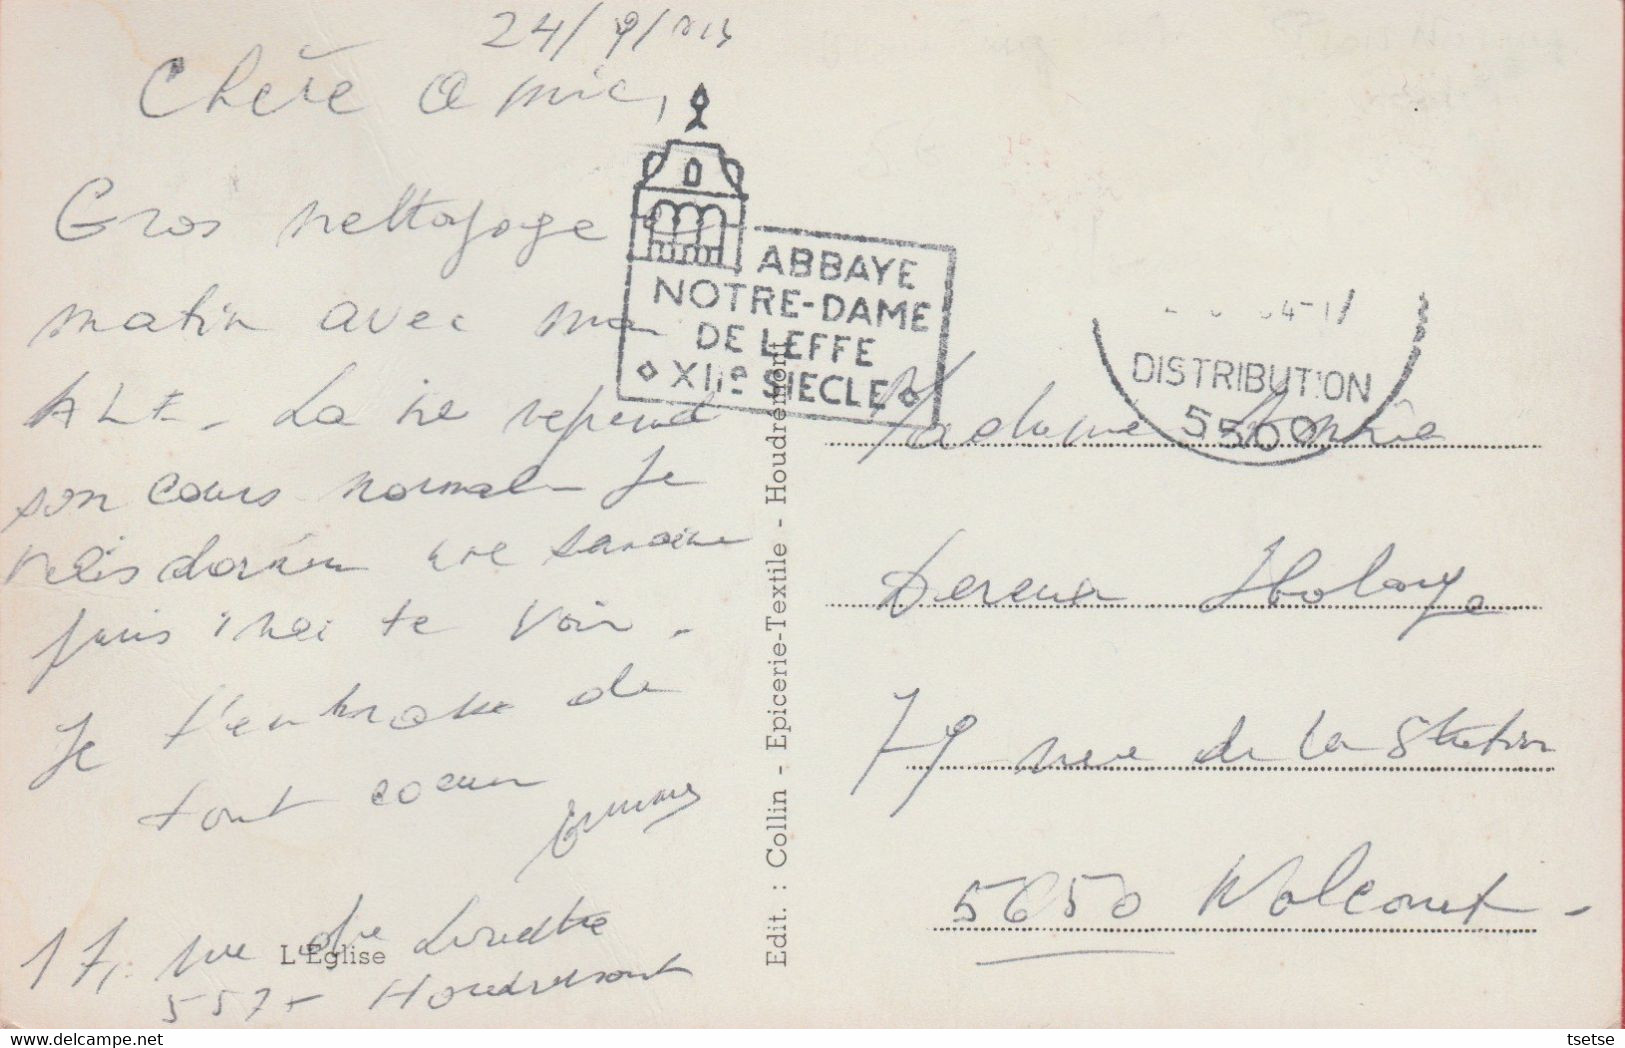 24/9/
Chère Amie,
Gros nettoyage
matin avec ma
ALE - La vie reprend
son cours normal Je
une semaine
puis j'irai te voir -
Je t'embrasse de
tout coeur
17, rue de
5570 Houdremont
L'Eglise
ABBAYE
NOTRE-DAME
DE LEFFE
XIIe SIECLE
Edit. : Collin - Epicerie-Textile - Houdremont
DISTRIBUTION
5500
Madame
Dereux
79 rue de la Station
5650 Walcourt -
tsetse